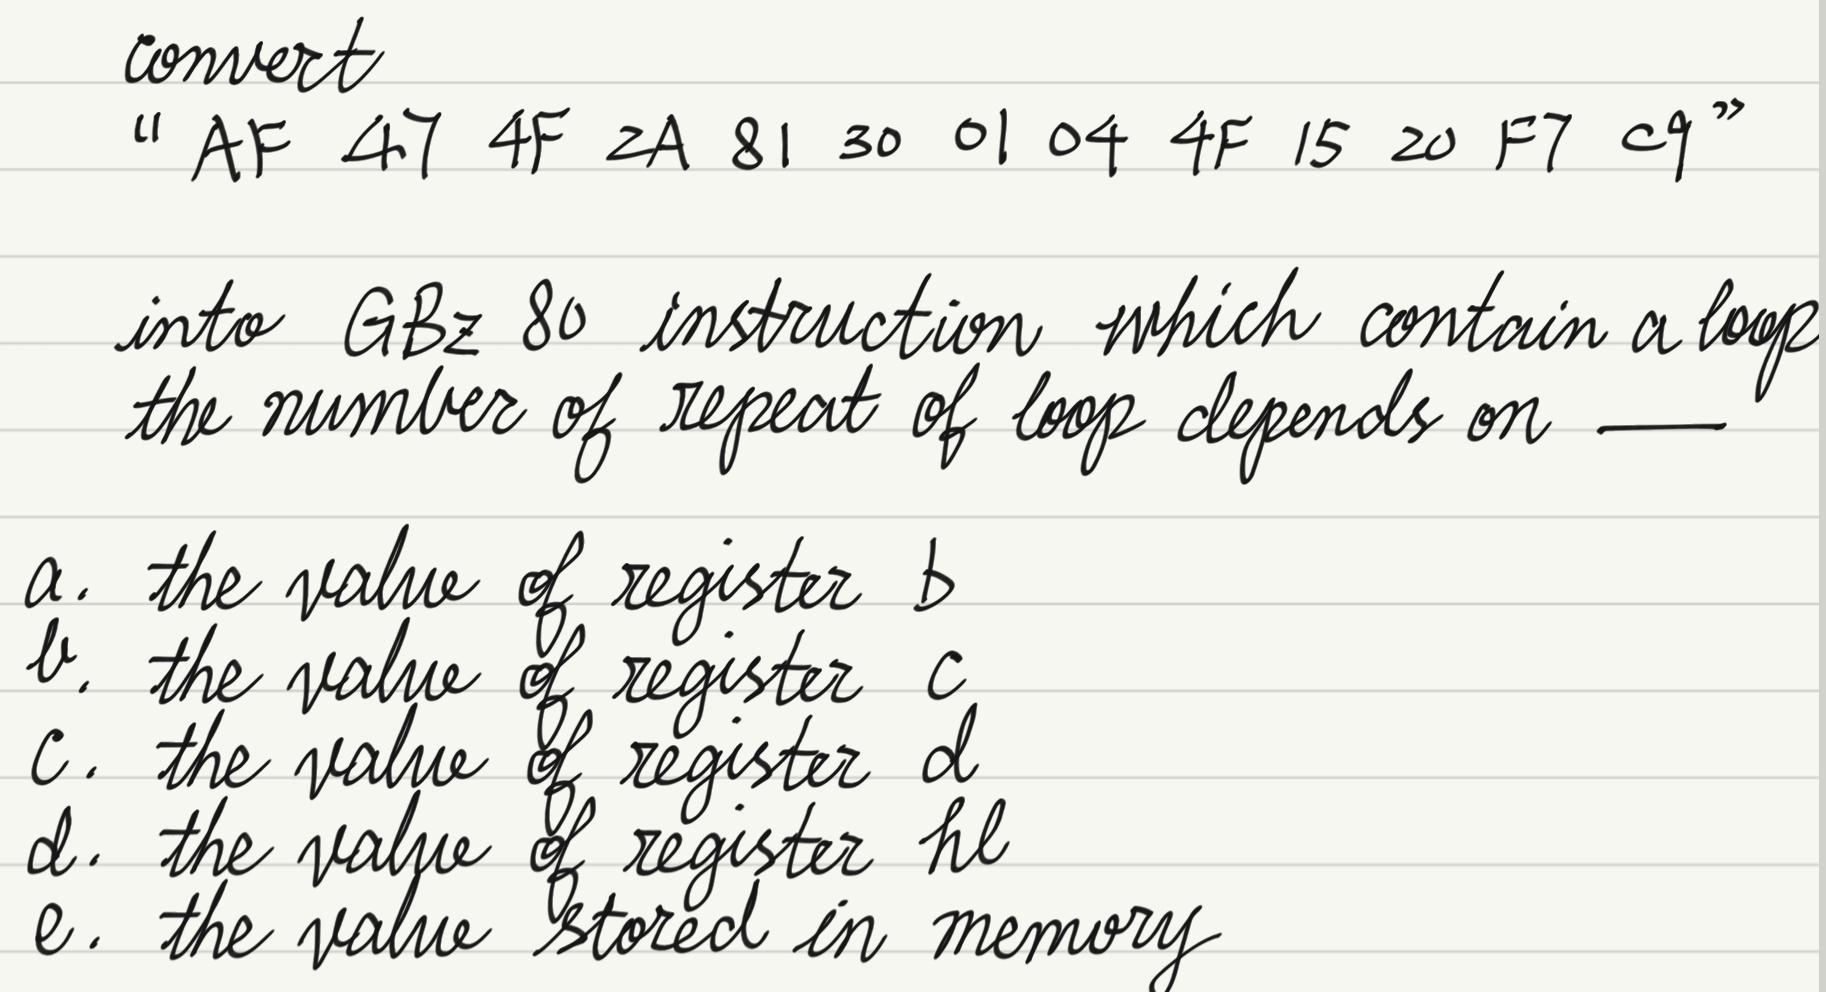 convert
“ AF 47 4F 2A 81 30 01 04 4F 15 20 F7 C9 ”
into GBz 80 instruction which contain a loop
the number of repeat of loop depends on ___
a. the value of register b
b. the value of register c
c. the value of register d
d. the value of register hl
e. the value stored in memory